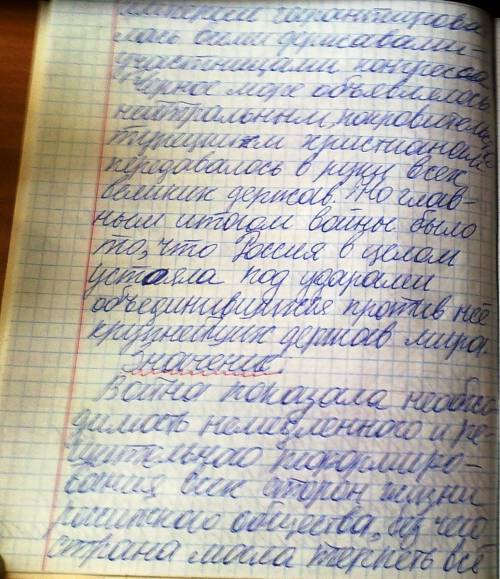 империи гарантирова
лась всеми державами-
участницами конгресса
Черное море объявлялось
нейтральным, покровительство
турецким христианам
передавалось в руки всех
великих держав. Но глав-
ным итогом войны было
то, что Россия в целом
устояла под ударами
объединившихся против неё
крупнейших держав мира.
Значение.
Война показала необхо
димость немедленного и ре-
шительного реформиро-
вания всех сторон жизни
российского общества, без чего
страна могла терпеть всё